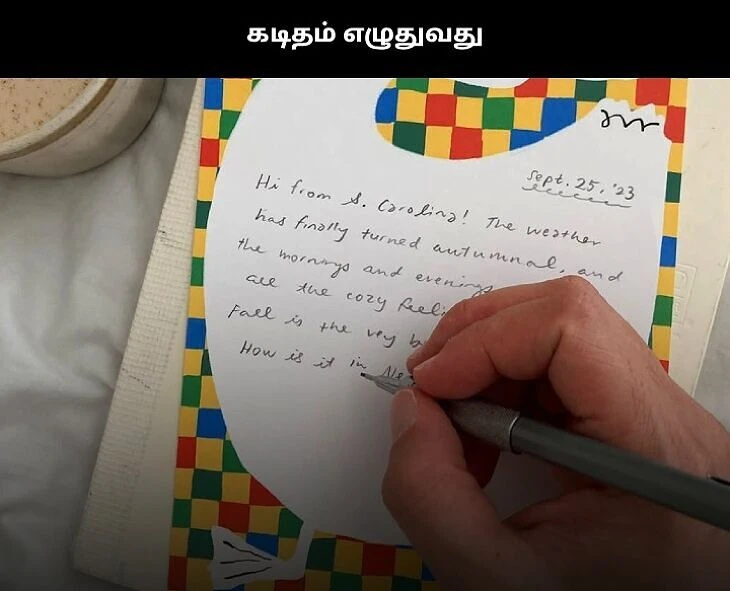 கடிதம் எழுதுவது
Sept. 25, '23
Hi from S. Carolina! The weather
has finally turned autumnal, and
the mornings and evenings
all the cozy
Fall is the very
How is it in